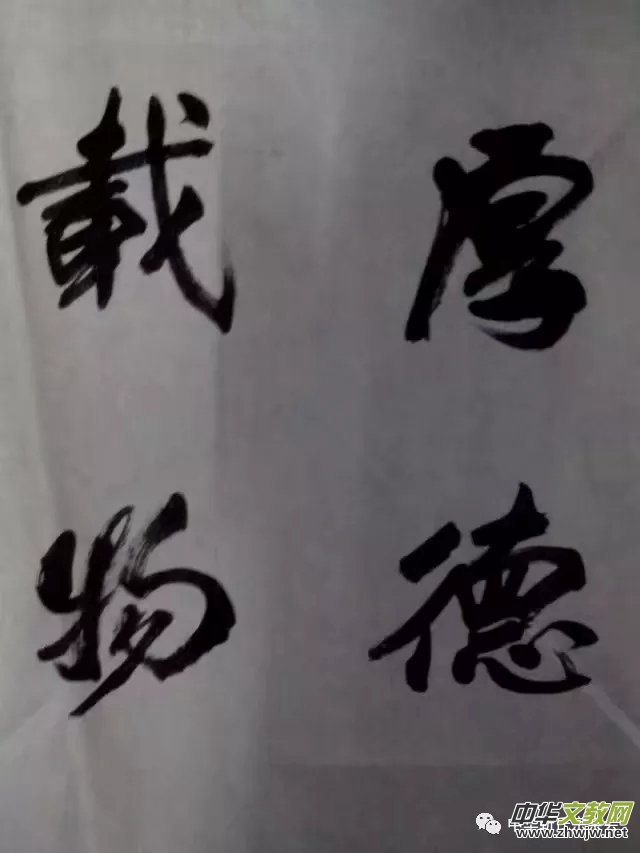 厚德
載物
中华文教网
www.zhwjw.net